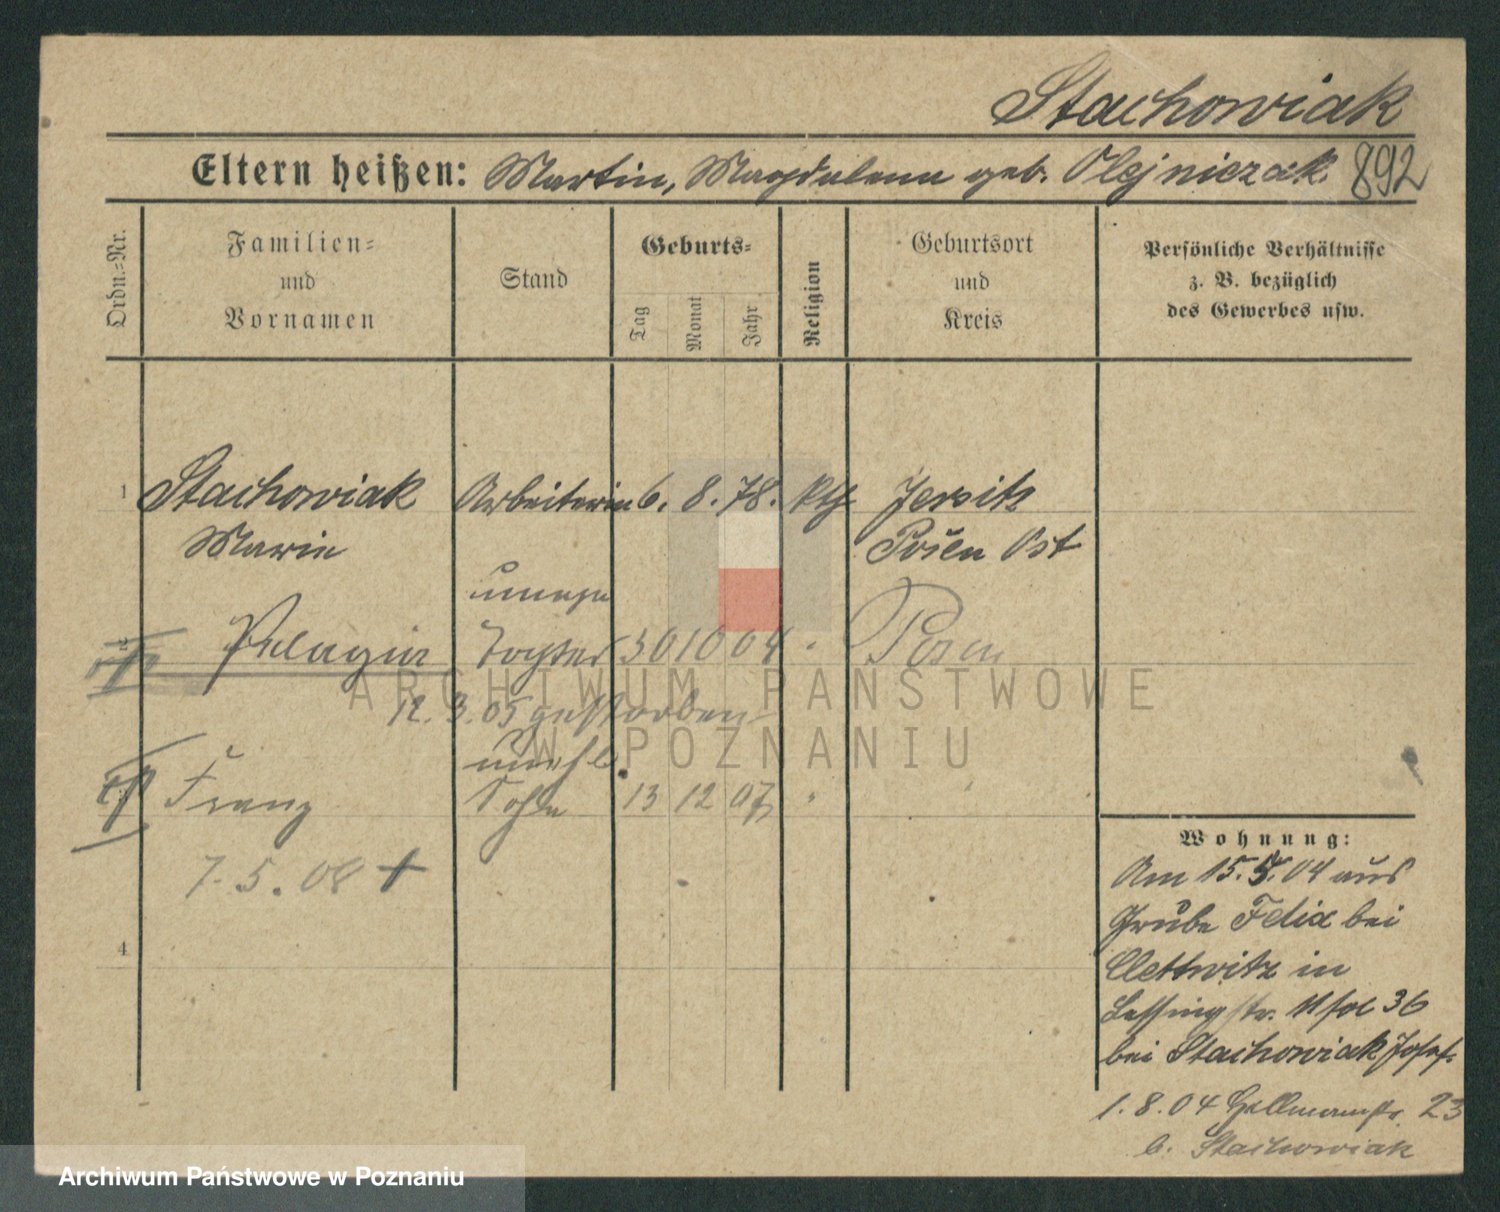 Stachowiak
Eltern heißen: Martin, Magdalena geb. Olejniczak. 892
Ordn.=Nr.
Familien=
und
Vornamen
Stand
Geburts=
Tag
Monat
Jahr
Religion
Geburtsort
und
Kreis
Persönliche Verhältnisse
z. B. bezüglich
des Gewerbes usw.
1 Stachowiak Arbeiterin 6. 8. 78. kth Jersitz
Marie Posen Ost
unehe
Pelagia Tochter 30 10 04 " Posen
12. 3. 05 gestorben
unehl.
Franz Sohn 13 12 07 " "
7. 5. 08 †
4
Wohnung:
Am 15. 5. 04 aus
Grube Felix bei
Clettwitz in
Lessingstr. 11 fol 36
bei Stachowiak Josef.
1. 8. 04 Hellmannstr. 23
b. Stachowiak
ARCHIWUM PAŃSTWOWE
W POZNANIU
Archiwum Państwowe w Poznaniu